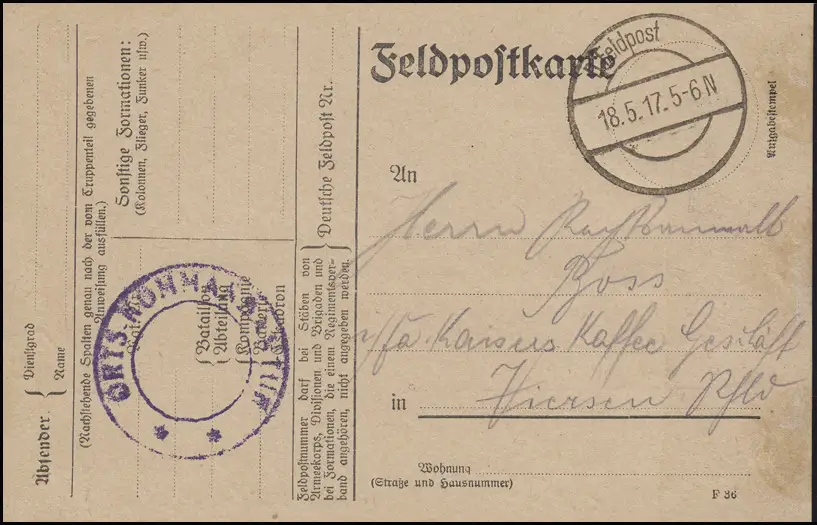 Feldpostkarte
Feldpost
18.5.17. 5-6 N
Ausgabestempel
An
Herrn Rechtsanwalt
Boss
i/fa. Kaisers Kaffee Geschäft
in Viersen Rhld
Wohnung
(Straße und Hausnummer)
F 36
Absender
Dienstgrad
Name
(Nachstehende Spalten genau nach der vom Truppenteil gegebenen
Anweisung ausfüllen.)
Sonstige Formationen:
(Kolonnen, Flieger, Funker usw.)
Bataillon
Abteilung
Kompagnie
Batterie
Eskadron
Feldpostnummer darf bei Stäben von
Armeekorps, Divisionen und Brigaden und
bei Formationen, die einem Regimentsver-
band angehören, nicht angegeben werden.
Deutsche Feldpost Nr.
ORTS-KOMMA